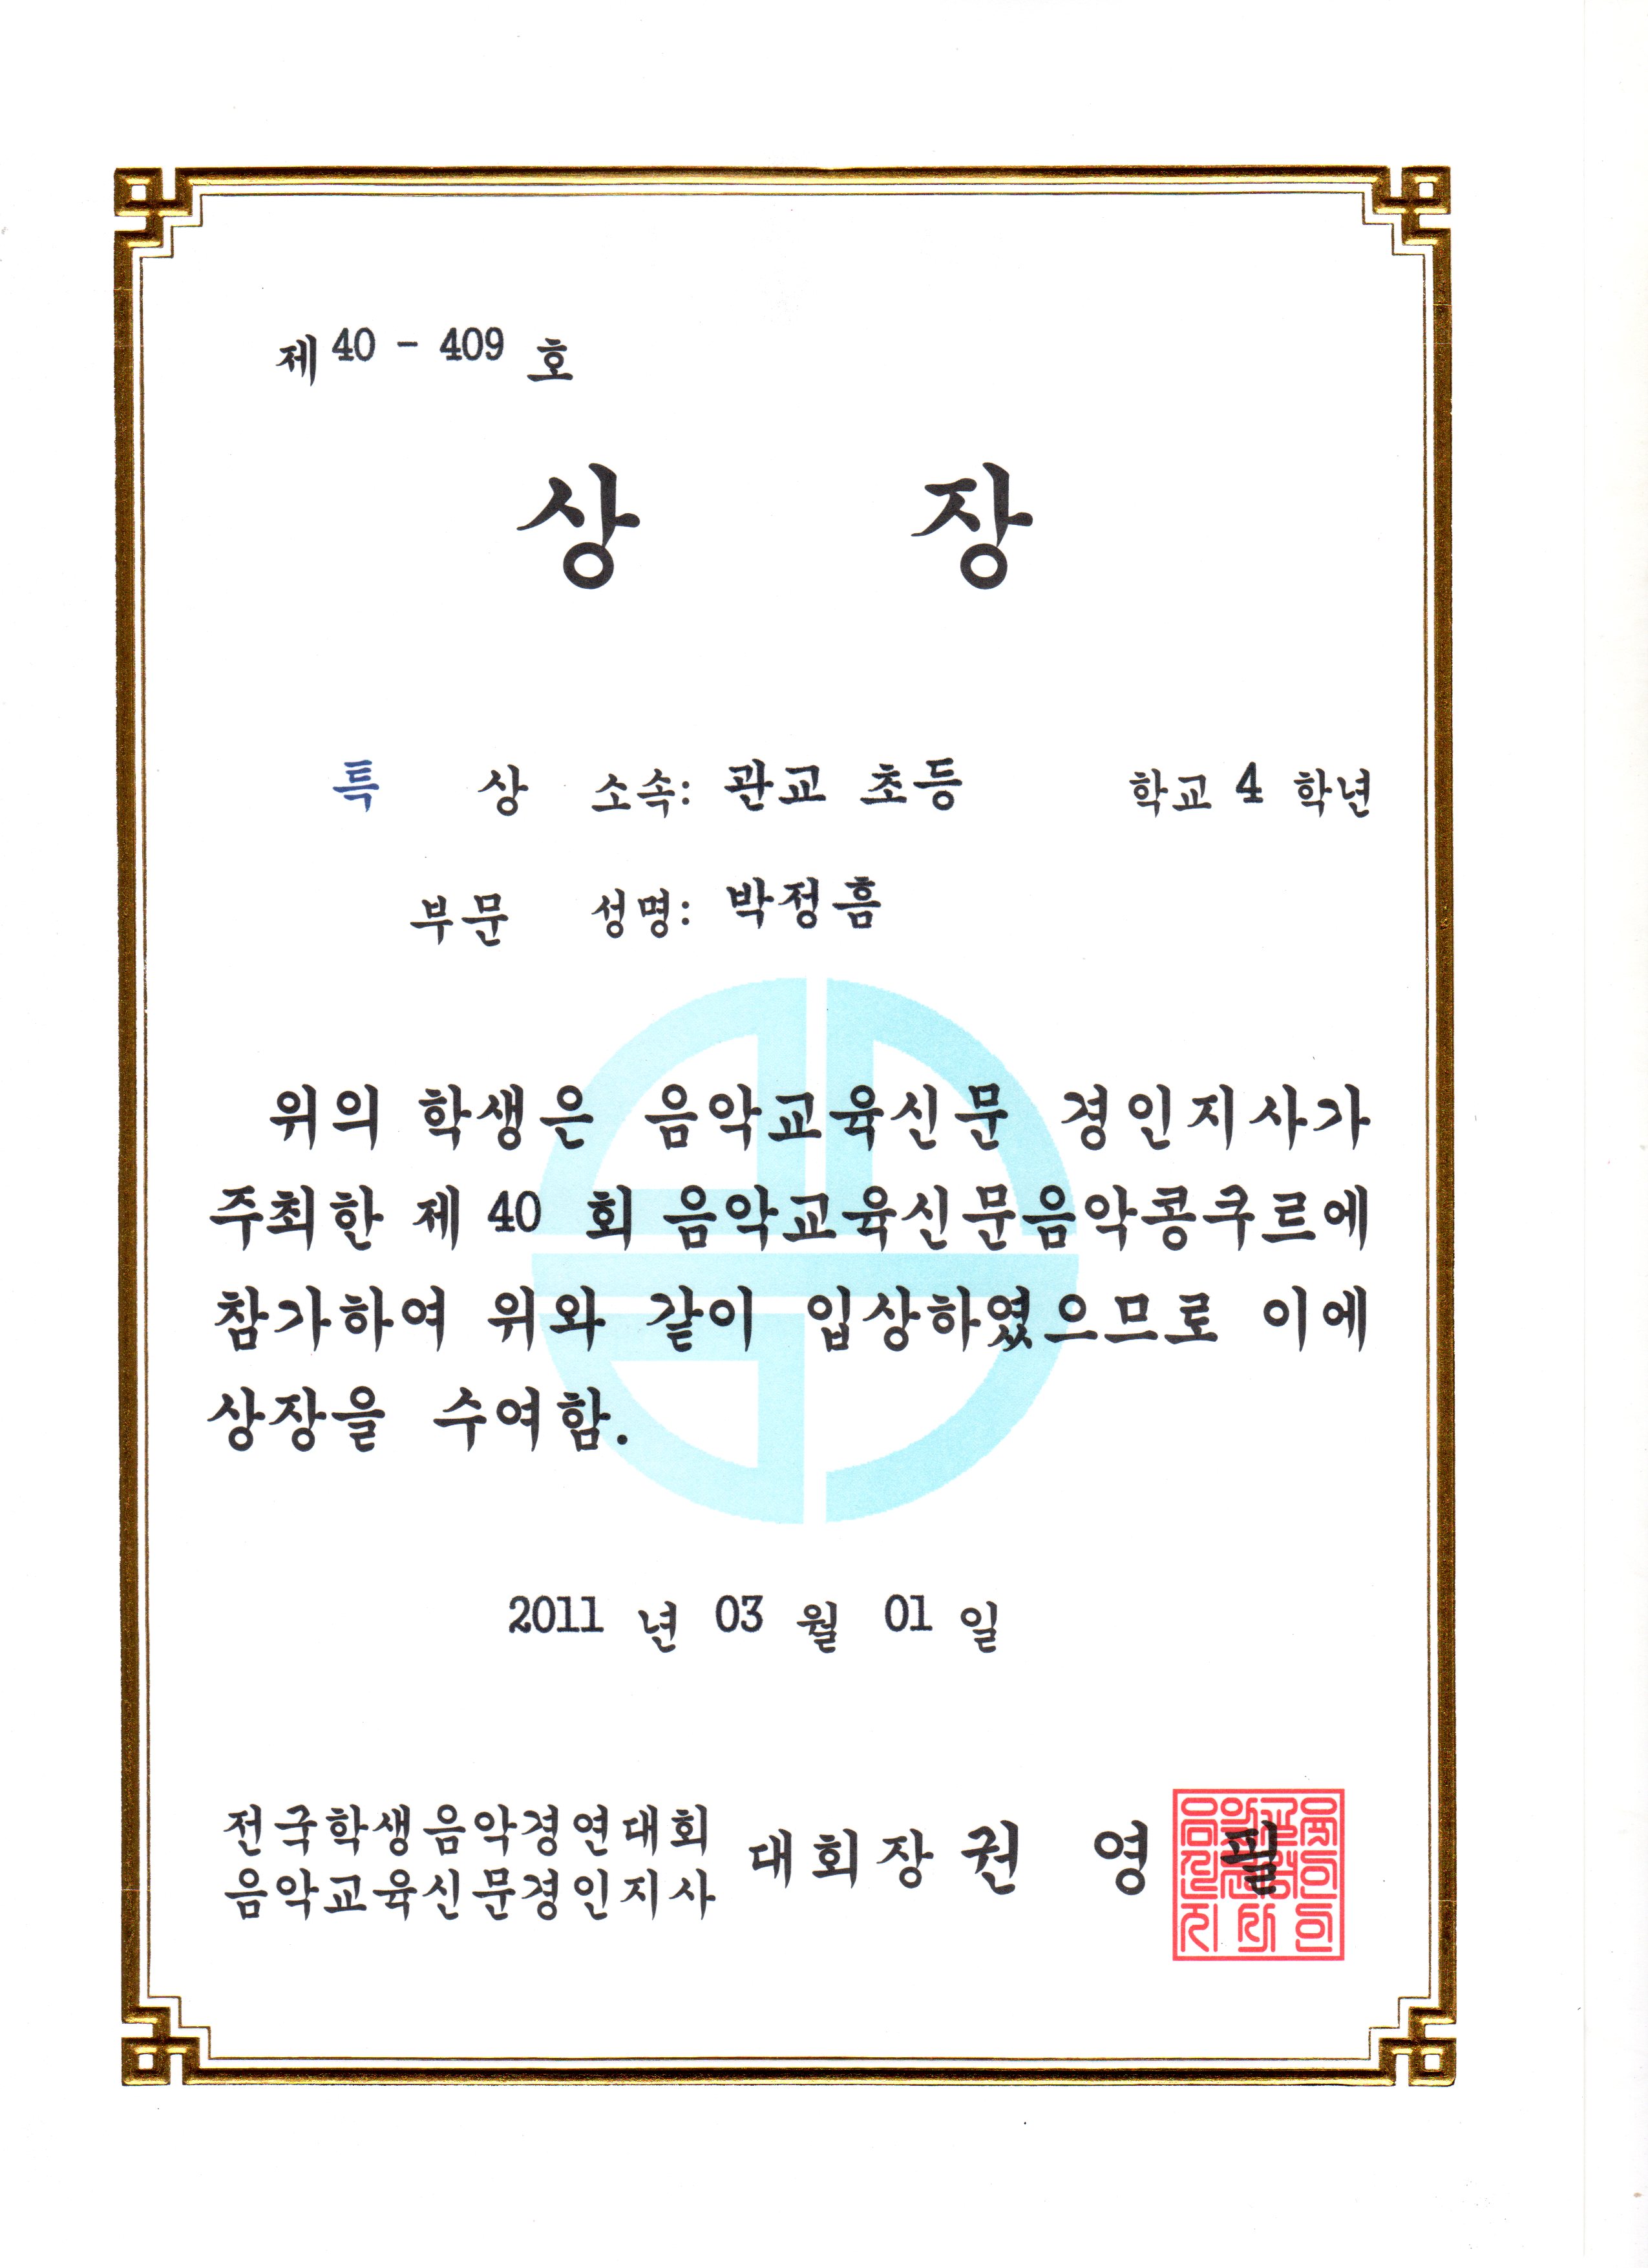 제 40 - 409 호
상 장
특 상 소속: 관교 초등 학교 4 학년
부문 성명: 박정흠
위의 학생은 음악교육신문 경인지사가
주최한 제 40 회 음악교육신문음악콩쿠르에
참가하여 위와 같이 입상하였으므로 이에
상장을 수여함.
2011 년 03 월 01 일
전국학생음악경연대회
음악교육신문경인지사
대회장 권 영 필